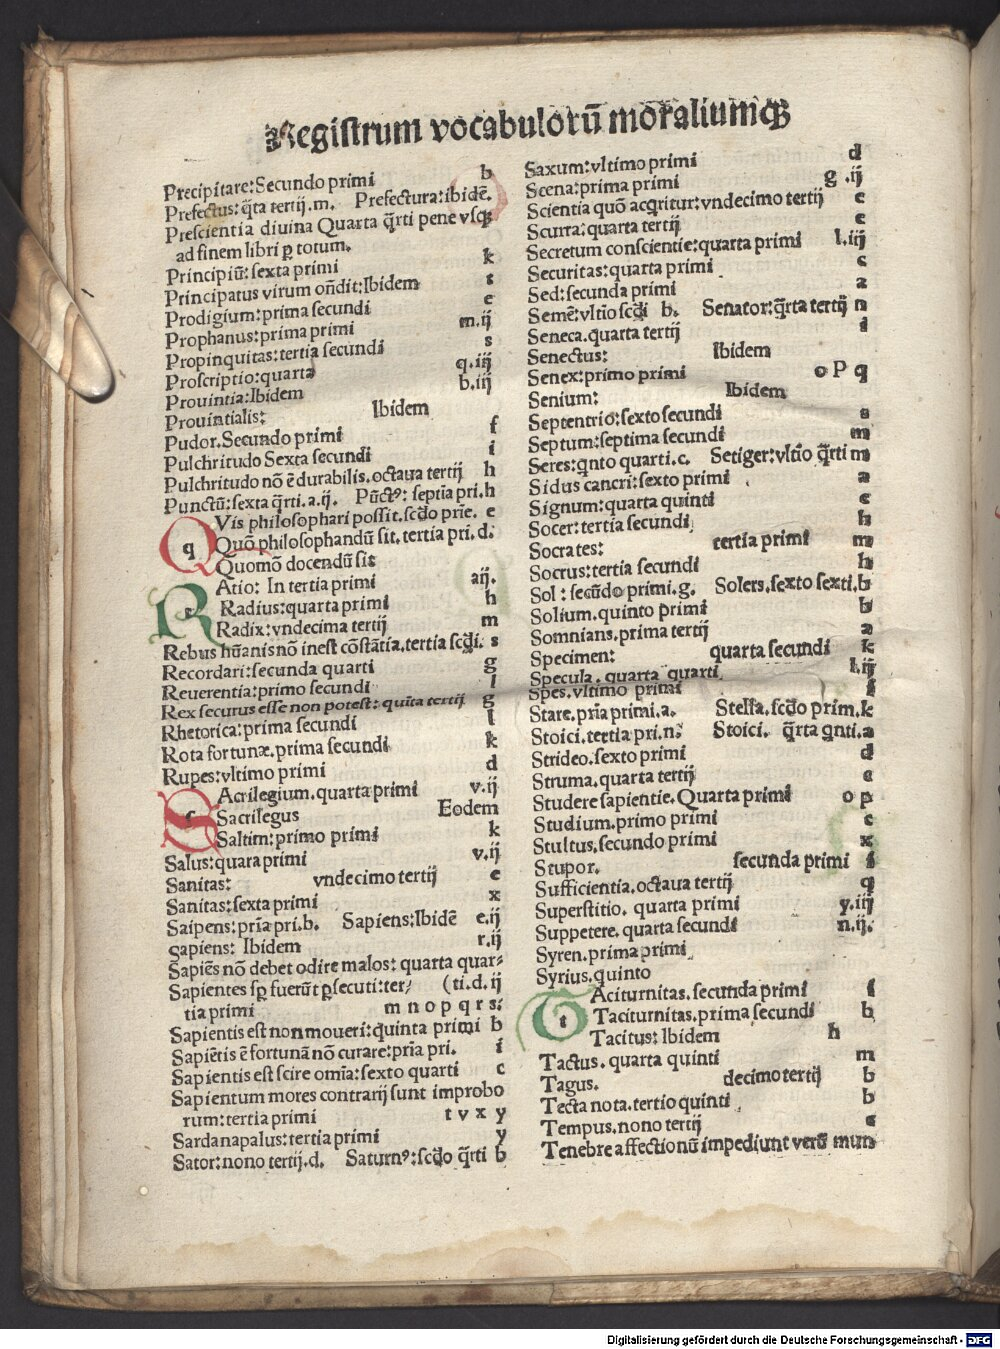 Registrum vocabuloru̅ moraliumqꝫ
Precipitare: Secundo primi b
Prefectus: q̅ta tertij.m. Prefectura: ibide̅.
Prescientia diuina Quarta q̅rti pene vsqꝫ
ad finem libri ꝑ totum.
Principiu̅: sexta primi k
Principatus virum on̅dit: Ibidem s
Prodigium: prima secundi e
Prophanus: prima primi m.ij
Propinquitas: tertia secundi s
Proscriptio: quarta q.iij
Prouintia: Ibidem b.iij
Prouintialis: Ibidem
Pudor. Secundo primi f
Pulchritudo Sexta secundi i
Pulchritudo no̅ e̅ durabilis. octaua tertij h
Punctu̅: sexta q̅rti.a.ij. Pu̅ctꝰ: septia pri. h
QVis philosophari possit. scd̅o prie̅. e
Quo̅ philosophandu̅ sit. tertia pri. d.
Quomo̅ docendu̅ sit
RAtio: In tertia primi aij.
Radius: quarta primi h
Radix: vndecima tertij m
Rebus hu̅anis no̅ inest co̅sta̅tia. tertia scd̅i. s
Recordari: secunda quarti g
Reuerentia: primo secundi l
Rex securus esse non potest: qui̅ta tertij g
Rhetorica: prima secundi l
Rota fortunæ. prima secundi k
Rupes: vltimo primi d
SAcrilegium. quarta primi v.ij
Sacrilegus Eodem
Saltim: primo primi k
Salus: quara primi v.ij
Sanitas: vndecimo tertij e
Sanitas: sexta primi x
Saipens: pri̅a pri.b. Sapiens: Ibide̅ e.ij
Sapiens: Ibidem r.ij
Sapie̅s no̅ debet odire malos: quarta quar⸗
Sapientes sꝑ fueru̅t ꝑsecuti: ter⸗ (ti.d.ij
tia primi m n o p q r s:
Sapientis est non moueri: quinta primi b
Sapie̅tis e̅ fortuna̅ no̅ curare: pri̅a pri. i
Sapientis est scire omi̅a: sexto quarti c
Sapientum mores contrarij sunt improbo
rum: tertia primi t v x y
Sardanapalus: tertia primi y
Sator: nono tertij.d. Saturnꝰ: scd̅o q̅rti b
Saxum: vltimo primi d
Scena: prima primi g .ij
Scientia quo̅ acq̅ritur: vndecimo tertij c
Scurra: quarta tertij e
Secretum conscientie: quarta primi l.iij
Securitas: quarta primi c
Sed: secunda primi a
Seme̅: vltio scd̅i b. Senator: q̅rta tertij n
Seneca. quarta tertij i
Senectus: Ibidem
Senex: primo primi o P q
Senium: Ibidem
Septentrio: sexto secundi s
Septum: septima secundi m
Seres: qn̅to quarti.c. Setiger: vltio̅ q̅rti m
Sidus cancri: sexto primi a
Signum: quarta quinti c
Socer: tertia secundi h
Socrates: tertia primi m
Socrus: tertia secundi h
Sol: secu̅do primi.g. Solers. sexto sexti. b
Solium. quinto primi b
Somnians. prima tertij a
Specimen: quarta secundi k
Specula. quarta quarti l.ij
Spes. vltimo primi f
Stare. pri̅a primi.a. Stella. scd̅o prim. k
Stoici. tertia pri.n. Stoici. q̅rta qn̅ti. a
Strideo. sexto primi d
Struma. quarta tertij c
Studere sapientie. Quarta primi o p
Studium. primo primi c
Stultus. secundo primi x
Stupor. secunda primi i
Sufficientia. octaua tertij q
Superstitio. quarta primi y.iij
Suppetere. quarta secundi n.ij.
Syren. prima primi
Syrius. quinto
TAciturnitas. secunda primi i
Taciturnitas. prima secundi b
Tacitus: Ibidem h
Tactus. quarta quinti m
Tagus. decimo tertij b
Tecta nota. tertio quinti b
Tempus. nono tertij e
Tenebre affectionu̅ impediunt veru̅ mun
Digitalisierung gefördert durch die Deutsche Forschungsgemeinschaft - DFG